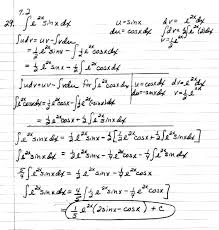 7.2
29. ∫e^{2x} sinx dx   u = sinx   dv = e^{2x} dx
du = cosx dx   ∫dv = ∫e^{2x} dx
∫udv = uv - ∫vdu   v = ½e^{2x}
= ½e^{2x} sinx - ∫½e^{2x} cosx dx
= ½e^{2x} sinx - ½∫e^{2x} cosx dx
∫udv = uv - ∫vdu for ∫e^{2x} cosx dx   u = cosx   dv = e^{2x} dx
du = -sinx dx   v = ½e^{2x}
∫e^{2x} cosx dx = ½e^{2x} cosx - ∫½e^{2x} (-sinx) dx
= ½e^{2x} cosx + ½∫e^{2x} sinx dx
∫e^{2x} sinx dx = ½e^{2x} sinx - ½[½e^{2x} cosx + ½∫e^{2x} sinx dx]
∫e^{2x} sinx dx = ½e^{2x} sinx - ¼e^{2x} cosx - ¼∫e^{2x} sinx dx
5/4 ∫e^{2x} sinx dx = ½e^{2x} sinx - ¼e^{2x} cosx
∫e^{2x} sinx dx = 4/5 [½e^{2x} sinx - ¼e^{2x} cosx]
= 1/5 e^{2x} (2sinx - cosx) + C